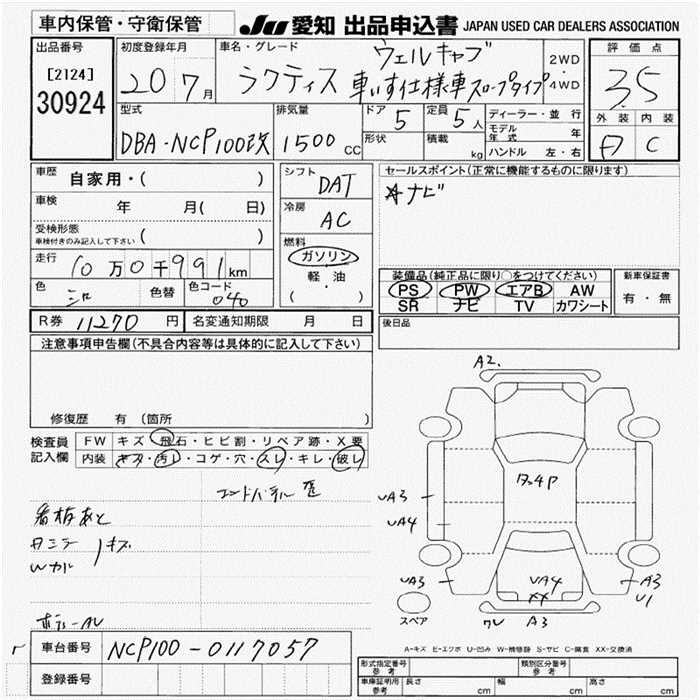 車内保管・守衛保管
JU 愛知 出品申込書 JAPAN USED CAR DEALERS ASSOCIATION
出品番号
[2124]
30924
初度登録年月
20 7月
車名・グレード
ラクティス ウェルキャブ
車いす仕様車スロープタイプ
2WD
・
4WD
評価点
3.5
外装 内装
C
型式
DBA-NCP100改
排気量
1500 CC
ドア 5
形状
定員 5人
積載 kg
ディーラー・並行
モデル年式 年
ハンドル 左・右
車歴 自家用・( )
車検 年 月( 日)
受検形態
車検付きのみ記入して下さい ( )
走行 10万0千991km
色 シロ 色替 色コード 040
シフト DAT
冷房 AC
燃料
ガソリン
軽・油
( )
セールスポイント(正常に機能するものに限ります)
ナビ
装備品(純正品に限り○をつけてください)
PS PW エアB AW
SR ナビ TV カワシート
新車保証書
有・無
R券 11270円 名変通知期限 月 日
後日品
注意事項申告欄(不具合内容等は具体的に記入して下さい)
修復歴 有 (箇所 )
検査員
記入欄
FW キズ・飛石・ヒビ割・リペア跡・X要
内装 キズ・汚レ・コゲ・穴・スレ・キレ・破レ
看板あと
キズ
A2.
UA3
UA4
UA3
UA4
XX
A3
U1
A3
スペア
A-キズ E-エクボ U-凹み W-補修跡 S-サビ C-腐食 XX-交換済
車台番号 NCP100-0117057
登録番号
形式指定番号
参考
類別区分番号
参考
車庫証明用
参考
長さ cm 幅 cm 高さ cm